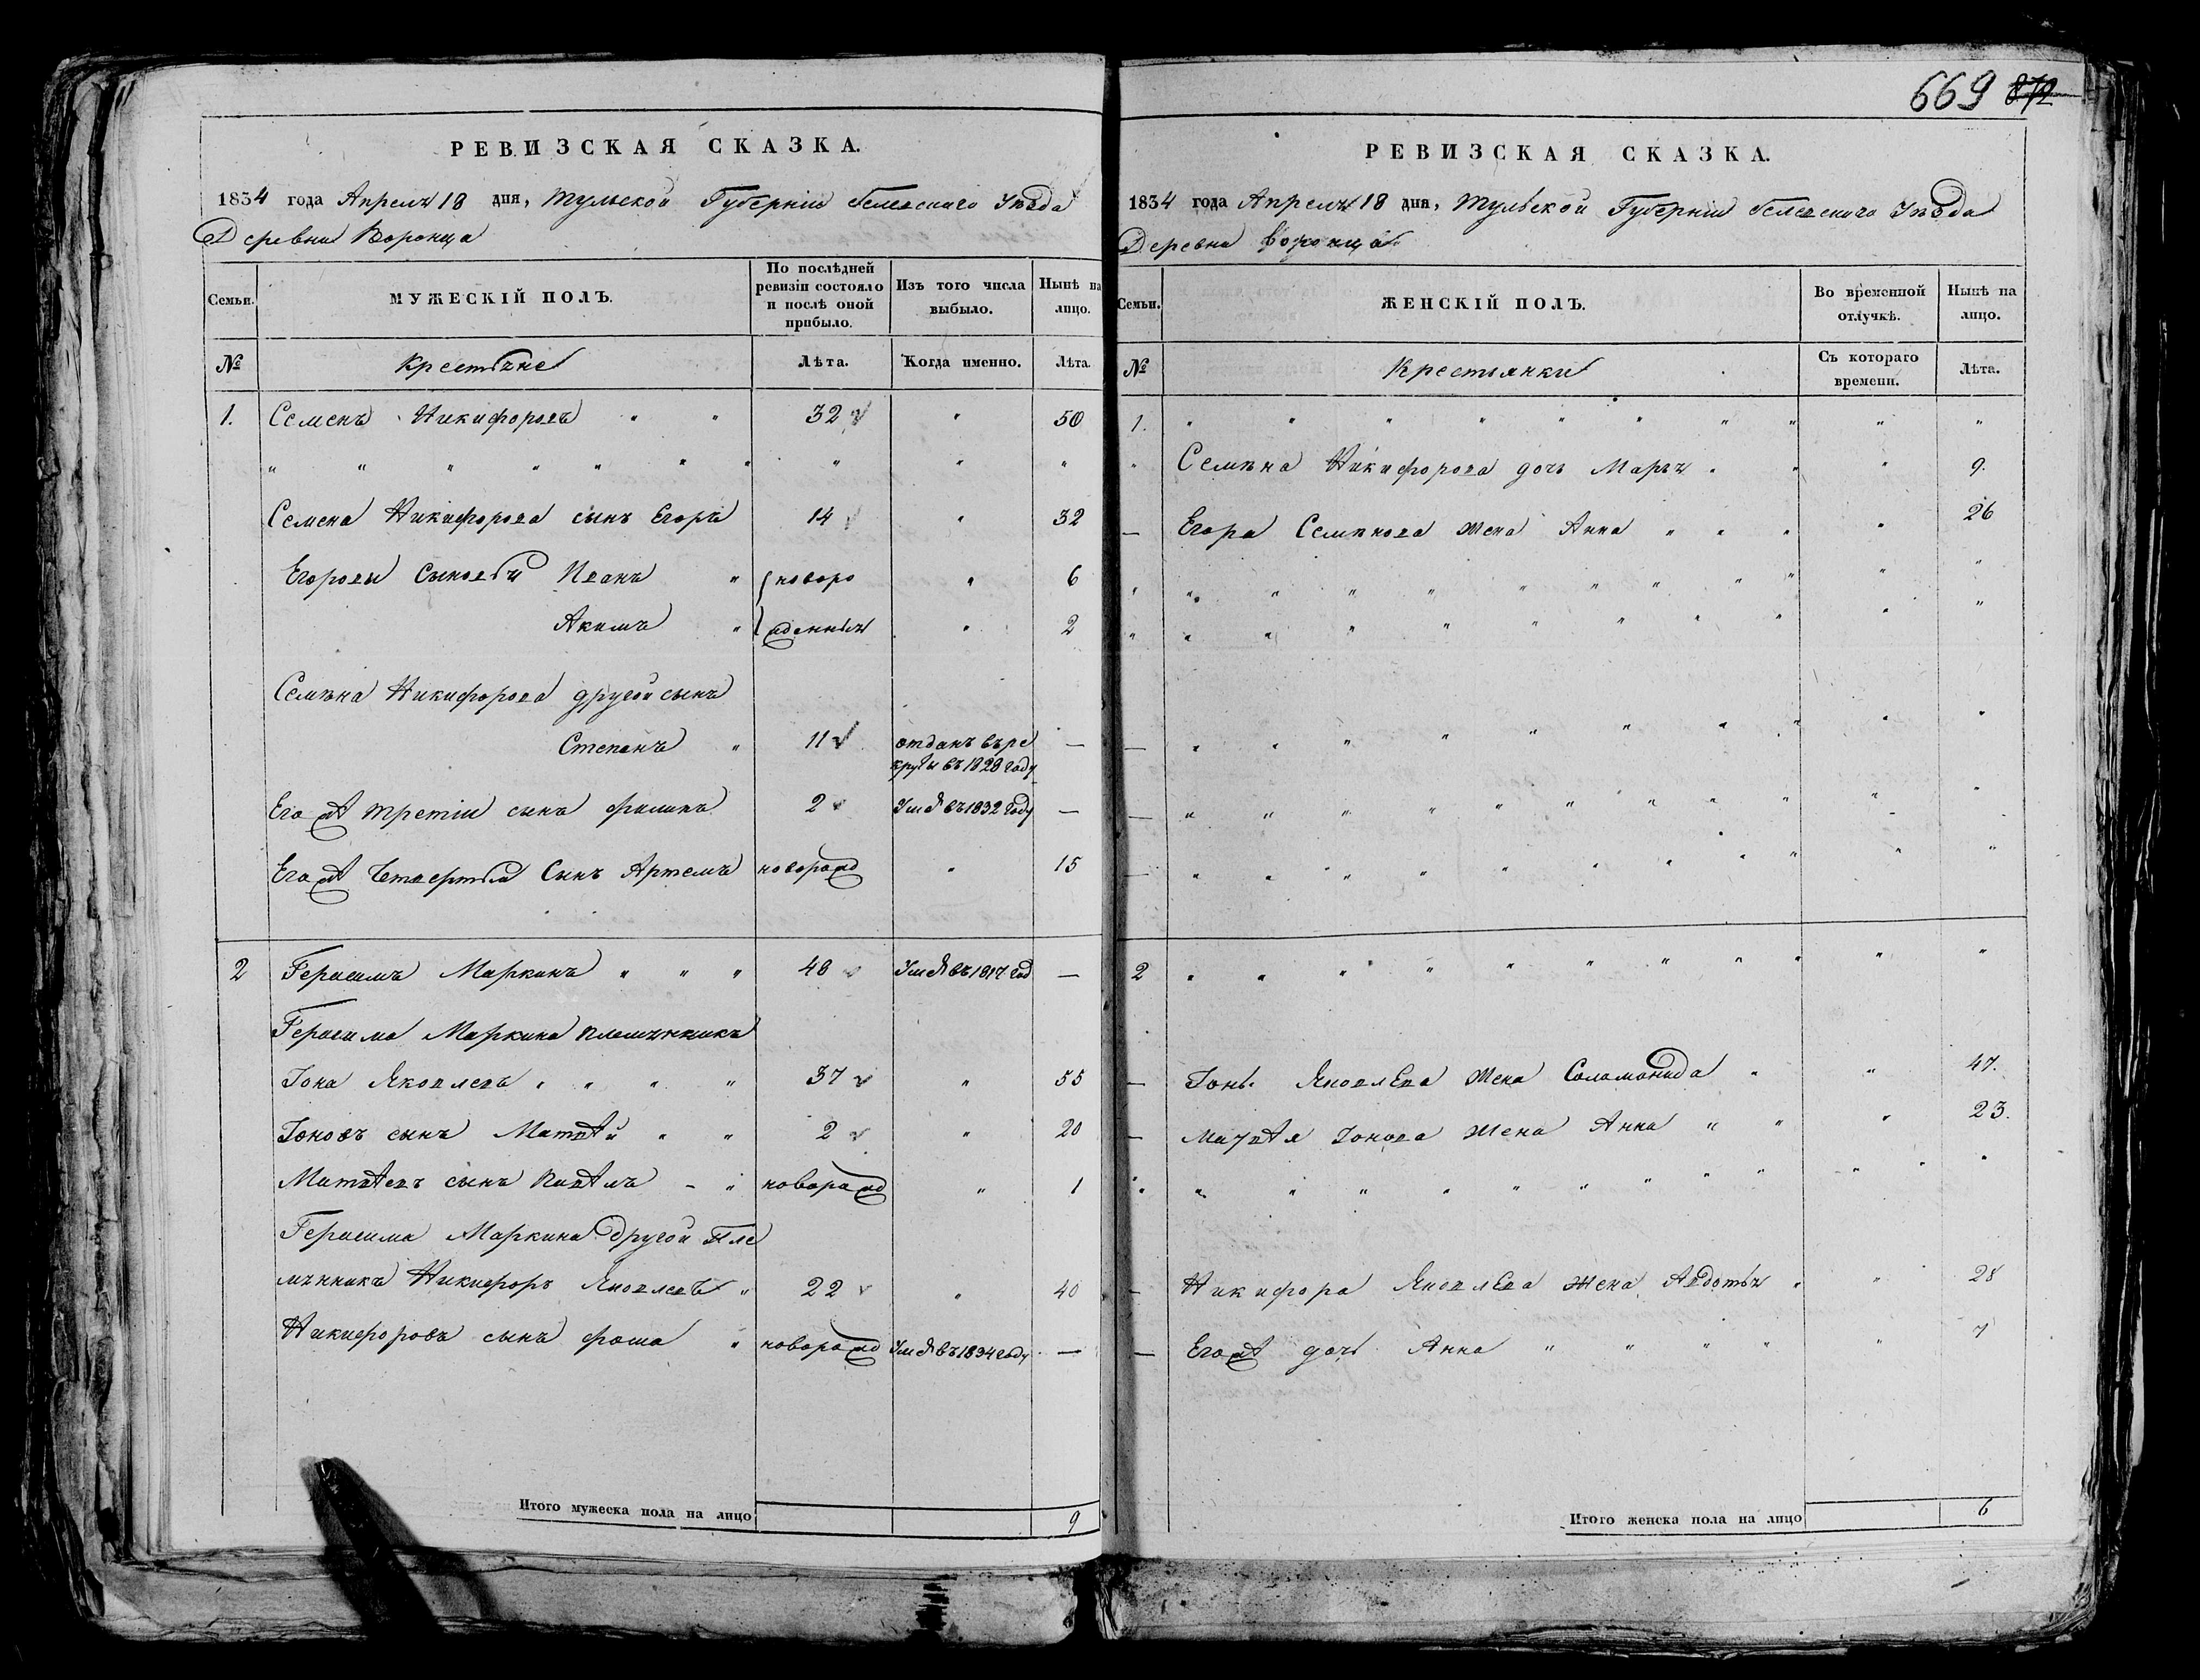 669 872
РЕВИЗСКАЯ СКАЗКА.
1834 года Апреля 18 дня, Тульской Губернiи Белевскаго Уѣзда
Деревни Воронца
Семьи. МУЖЕСКIЙ ПОЛЪ. По послѣдней ревизiи состояло и послѣ оной прибыло. Изъ того числа выбыло. Нынѣ на лицо.
№ Крестьяне Лѣта. Когда именно. Лѣта.
1. Семенъ Никифоровъ " " 32 " 50
" " " " " " " " " "
Семена Никифорова сынъ Егоръ 14 " 32
Егоровы Сыновья Иванъ " новоро " 6
Акимъ " жденныя " 2
Семѣна Никифорова другой сынъ
Степанъ " 11 отданъ въ ре —
круты въ 1828 году
Его жѣ третiи сынъ филипъ 2 Умѣ въ 1832 году —
Его жѣ Четвертыи Сынъ Артемъ новорожд " 15
2 Герасимъ Маркинъ " " " 48 Умѣ въ 1817 год —
Герасима Маркина племянникъ
Iона Яковлевъ " " " " 37 " 55
Iоновъ сынъ Матвѣй " " 2 " 20
Матвѣевъ сынъ Павѣлъ - " новорожд " 1
Герасима Маркина другой Пле
мянникъ Никифоръ Яковлевъ " 22 " 40
Никифоровъ сынъ фома " новорожд Умѣ въ 1834 году —
Итого мужеска пола на лицо 9
РЕВИЗСКАЯ СКАЗКА.
1834 года Апреля 18 дня, Тульской Губернiи Белевскаго Уѣзда
Деревни Воронца
Семьи. ЖЕНСКIЙ ПОЛЪ. Во временной отлучкѣ. Нынѣ на лицо.
№ Крестьянки Съ котораго времени. Лѣта.
1. " " " " " " " " " "
" Семѣна Никифорова дочь Марья " " " 9.
— Егора Семѣнова жена Анна " " " " 26
" " " " " " " " " " "
" " " " " " " " " " "
— " " " " " " " " " "
— " " " " " " " " " "
— " " " " " " " " " "
2 " " " " " " " " " "
— Iоны Яковлева жена Саламанида " " 47.
— Матвѣя Iонова жена Анна " " " 23.
" " " " " " " " " " "
— Никифора Яковлева жена Авдотья " " 28
— Его жѣ дочь Анна " " " " " 7
Итого женска пола на лицо 6